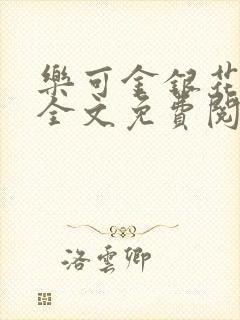 樂可金銀花
全文免費閱
洛雲卿